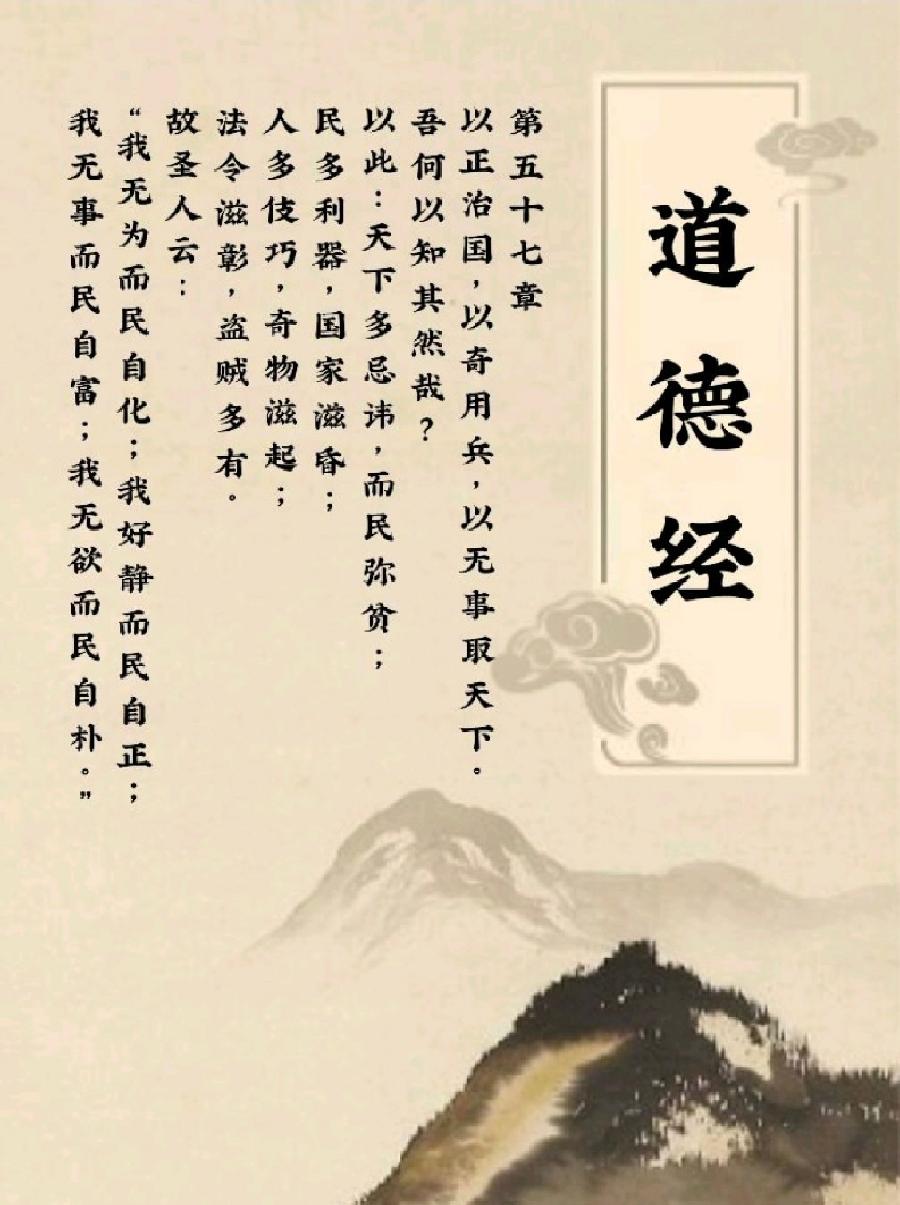 道德经
第五十七章
以正治国，以奇用兵，以无事取天下。
吾何以知其然哉？
以此：天下多忌讳，而民弥贫；
民多利器，国家滋昏；
人多伎巧，奇物滋起；
法令滋彰，盗贼多有。
故圣人云：
“我无为而民自化；我好静而民自正；
我无事而民自富；我无欲而民自朴。”